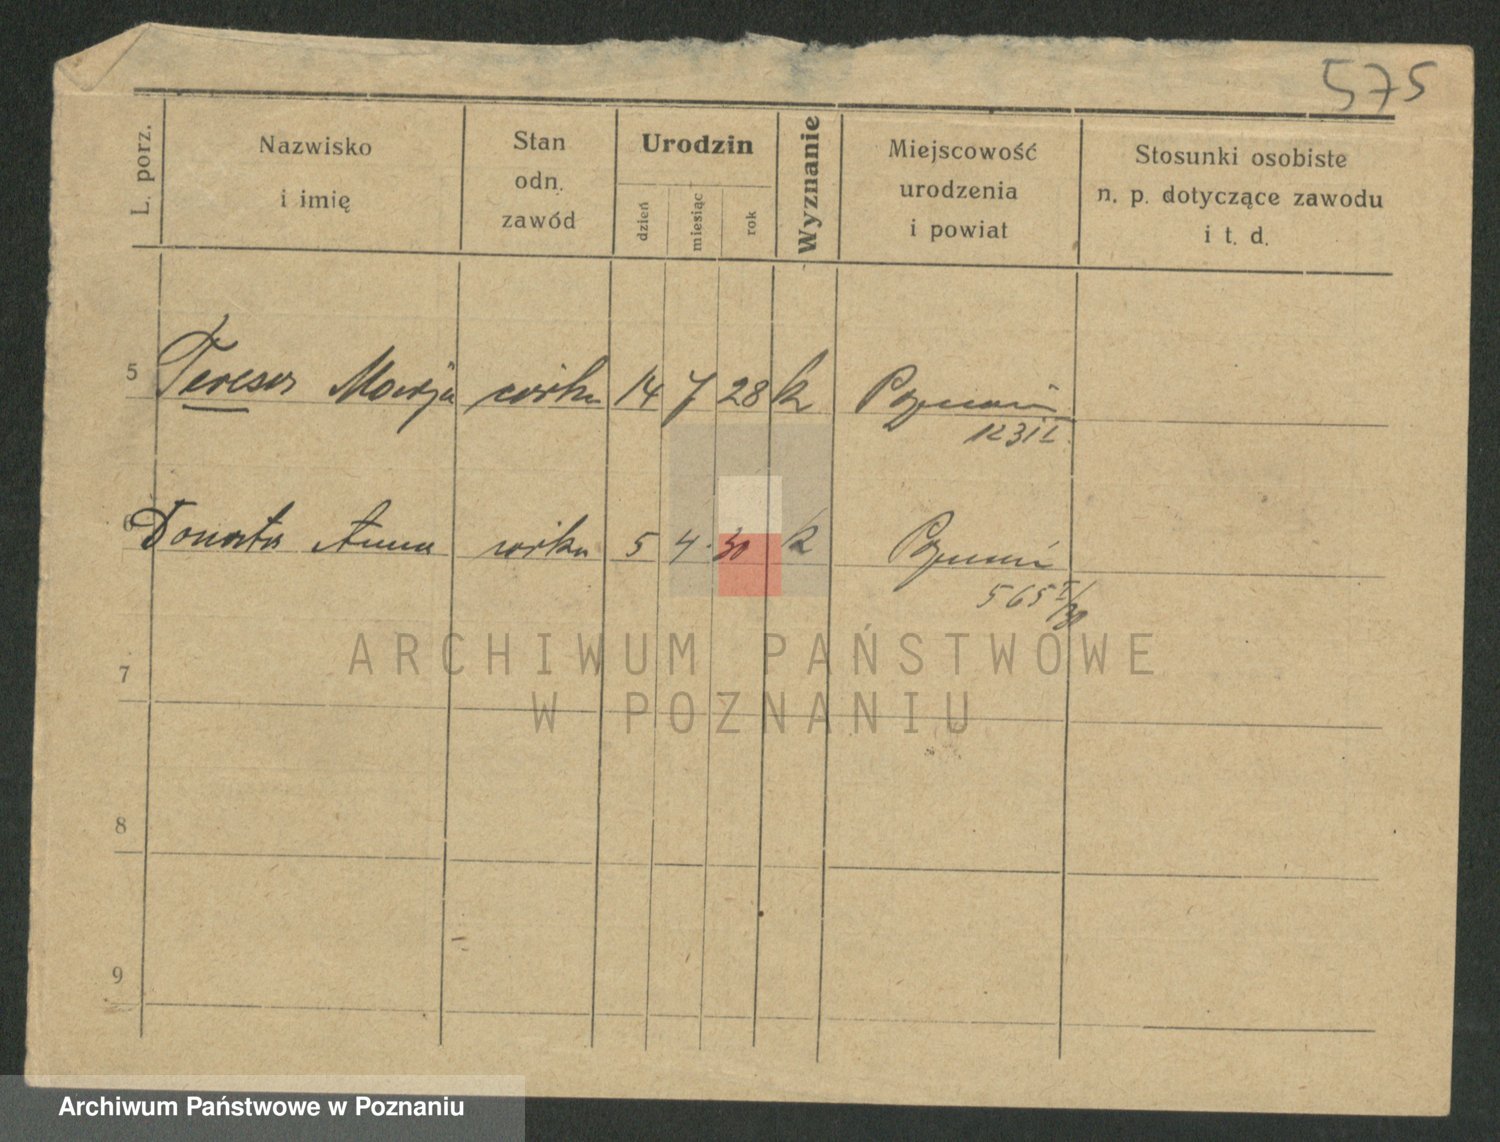 575
L. porz.
Nazwisko
i imię
Stan
odn.
zawód
Urodzin
dzień
miesiąc
rok
Wyznanie
Miejscowość
urodzenia
i powiat
Stosunki osobiste
n. p. dotyczące zawodu
i t. d.
5 Teresa Marja córka 14 7 28 k Poznań
1231 I
6 Donata Anna córka 5 4 30 k Poznań
565 I/30
ARCHIWUM PAŃSTWOWE
W POZNANIU
7
8
9
Archiwum Państwowe w Poznaniu